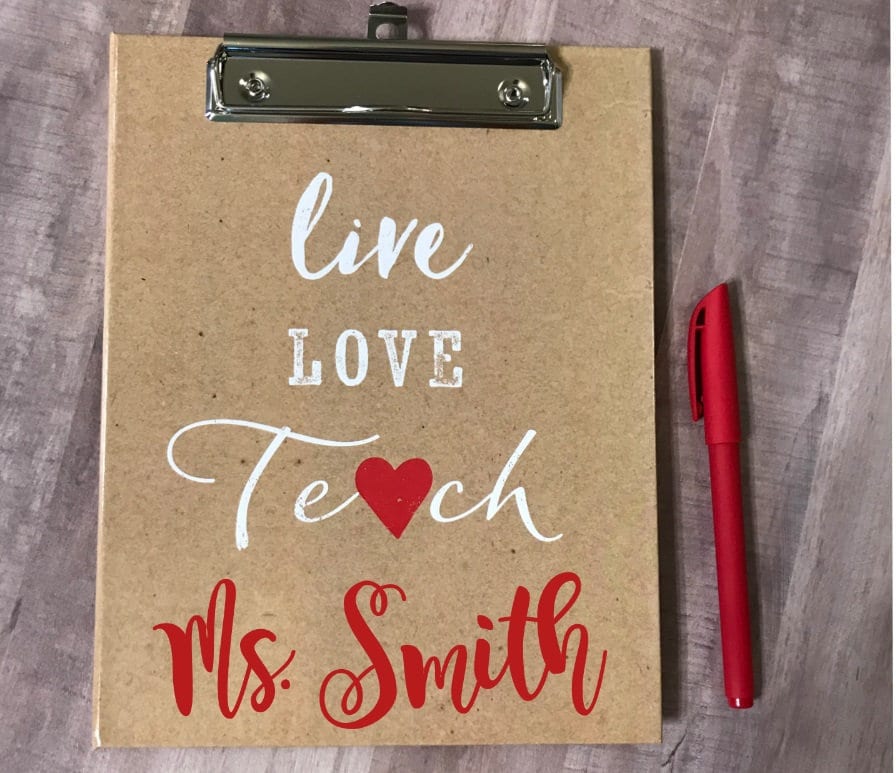 live
LOVE
Te♥ch
Ms. Smith